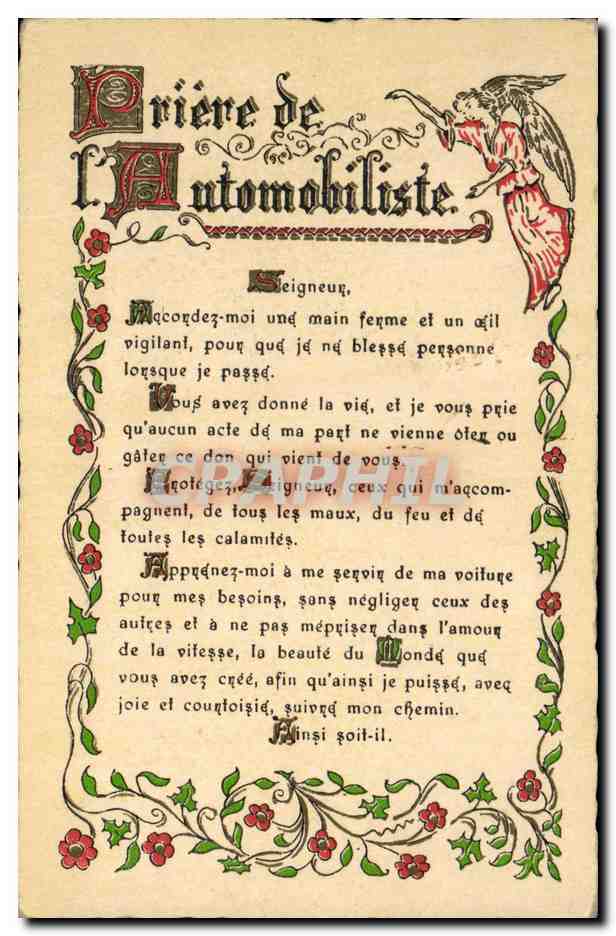 Prière de
l'Automobiliste.
Seigneur,
Accordez-moi une main ferme et un œil
vigilant, pour que je ne blesse personne
lorsque je passe.
Vous avez donné la vie, et je vous prie
qu'aucun acte de ma part ne vienne ôter ou
gâter ce don qui vient de vous.
Protégez, Seigneur, ceux qui m'accom-
pagnent, de tous les maux, du feu et de
toutes les calamités.
Apprenez-moi à me servir de ma voiture
pour mes besoins, sans négliger ceux des
autres et à ne pas mépriser dans l'amour
de la vitesse, la beauté du Monde que
vous avez créé, afin qu'ainsi je puisse, avec
joie et courtoisie, suivre mon chemin.
Ainsi soit-il.
CPAPHIL